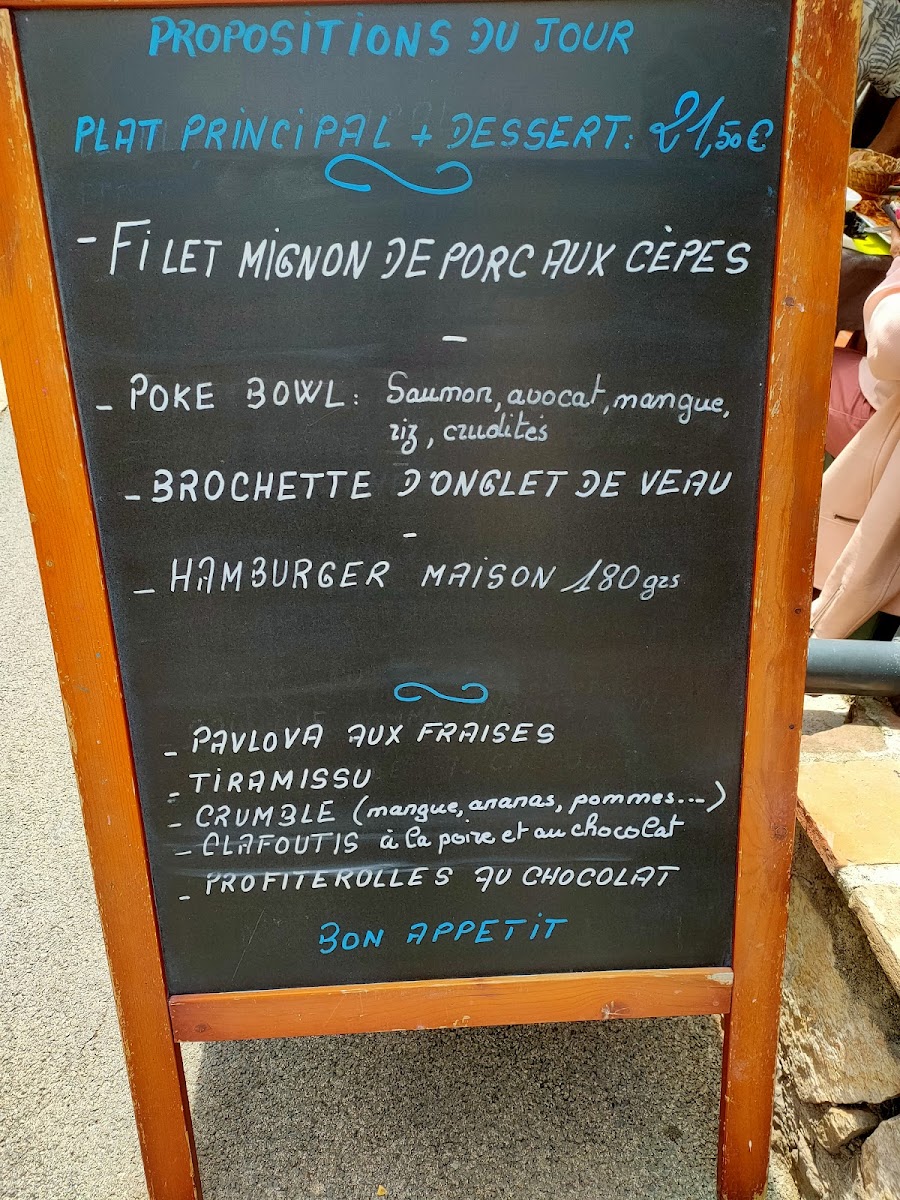 PROPOSITIONS DU JOUR
PLAT PRINCIPAL + DESSERT: 21,50€
- FILET MIGNON DE PORC AUX CÈPES
-
- POKE BOWL: Saumon, avocat, mangue,
riz, crudités
- BROCHETTE D'ONGLET DE VEAU
-
- HAMBURGER MAISON 180grs
- PAVLOVA AUX FRAISES
- TIRAMISSU
- CRUMBLE (mangue, ananas, pommes...)
- CLAFOUTIS à la poire et au chocolat
- PROFITEROLLES AU CHOCOLAT
BON APPETIT